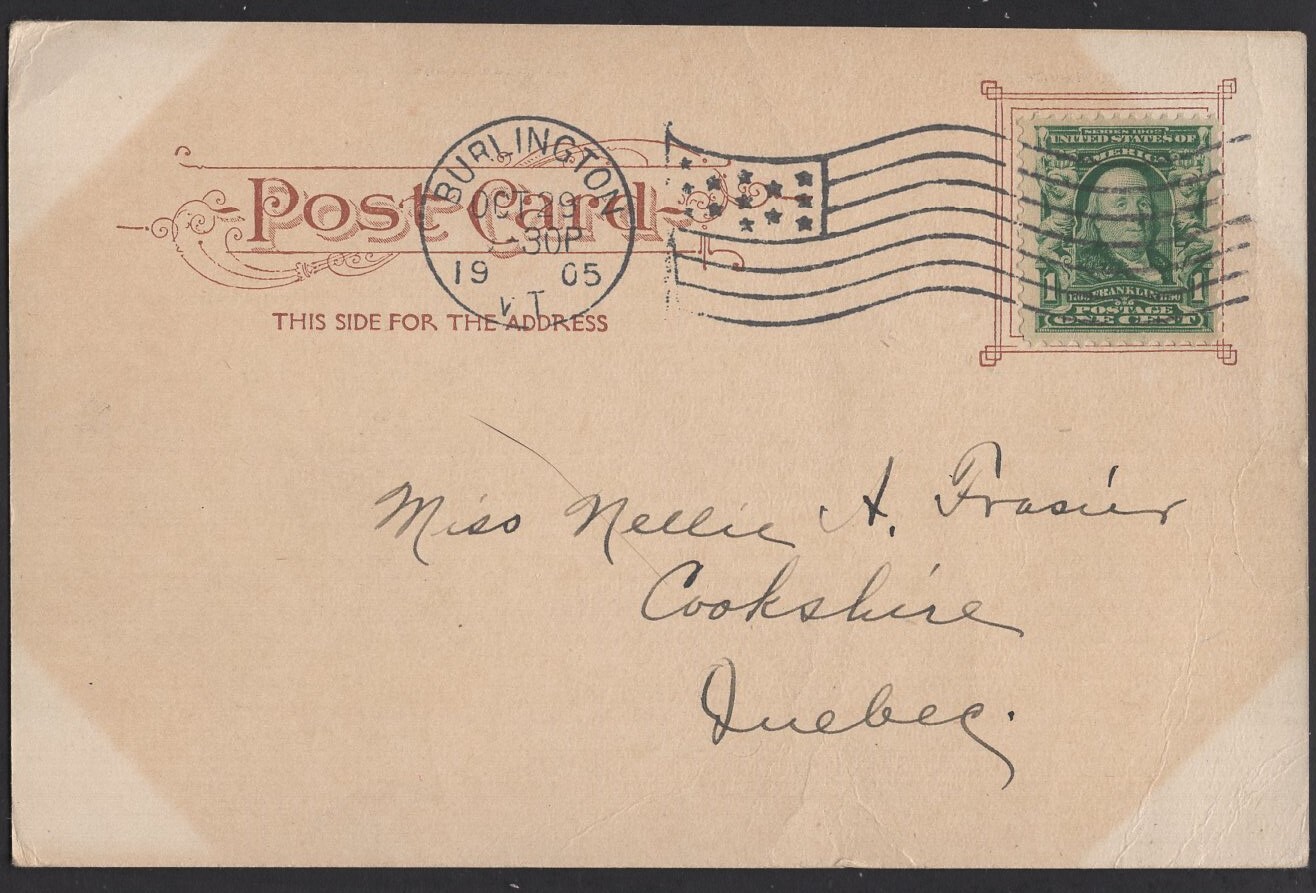 Post Card
THIS SIDE FOR THE ADDRESS
BURLINGTON
OCT 29
30P
19 05
VT
SERIES 1902
UNITED STATES OF
AMERICA
1 FRANKLIN 1
POSTAGE
ONE CENT
Miss Nellie A. Frasier
Cookshire
Quebec.